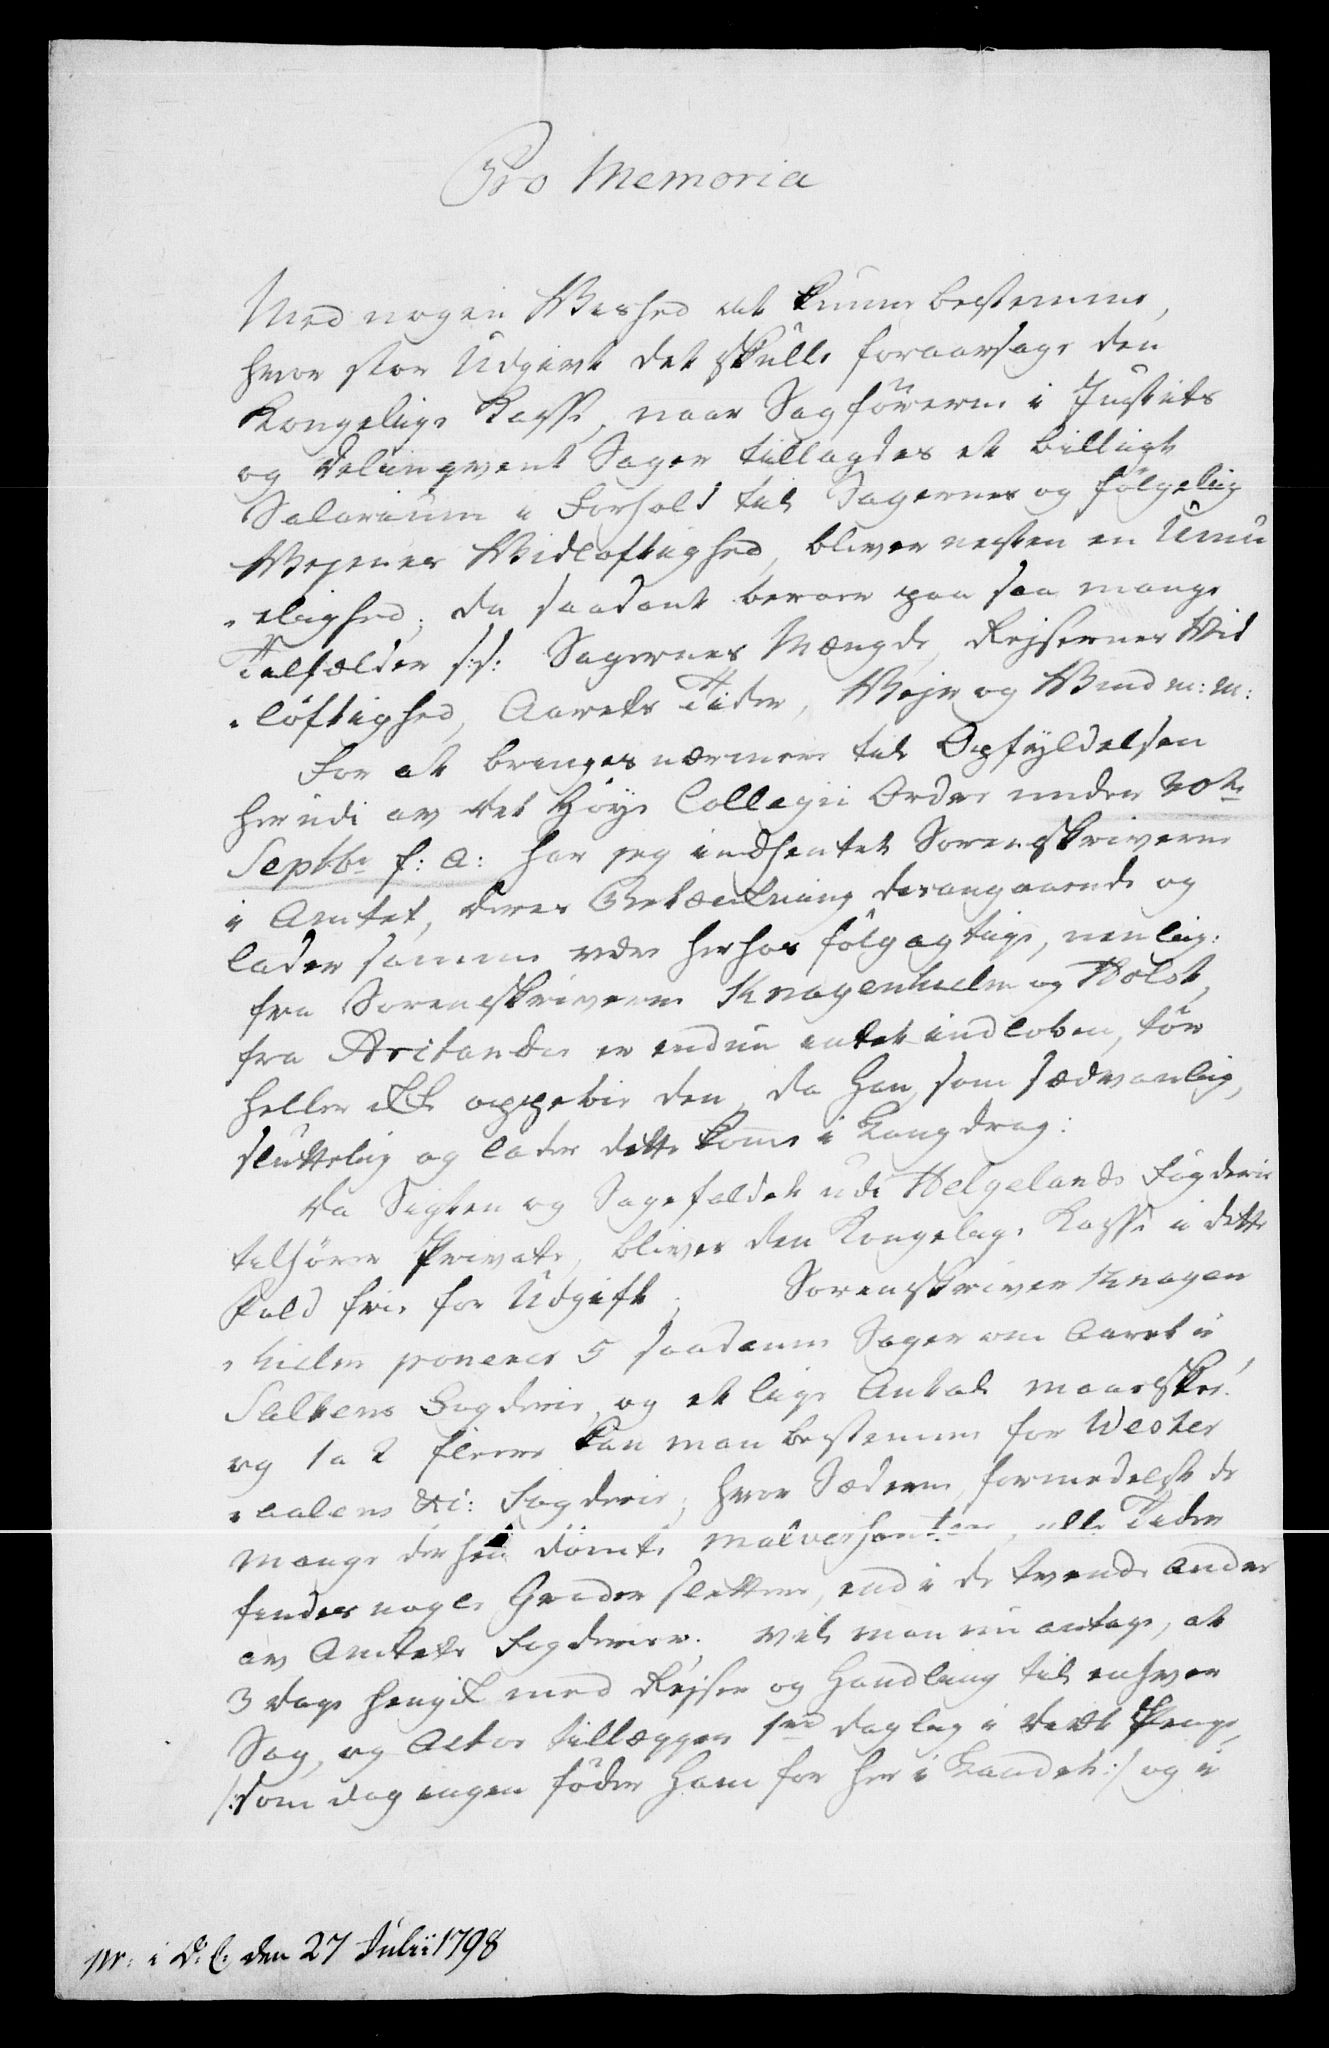 Pro Memoria
Med nogen Vished at kunne bestemme,
hvor stor Udgivt det skulle foraarsage den
Kongelige Kasse, naar Sagførerne i Justits
og Delinqvent Sager tillagdes et billigt
Salarium i Forhold til Sagernes og følgelig
Vejenes Vidløftighed, bliver nesten en Umu
„elighed; da saadant beroer paa saa mange
Tilfælder s:s: Sagernes Mængde, Rejsernes Vid
„løftighed, Aarets Tider, Vejr og Vind m: m:
For at bringes nærmere til Opfyldelsen
herudi av det Høye Collegii Ordre under 20de
Septbr f: a: har jeg indhentet Sorenskriverne
i Amtet, deres Betænkning desangaaende og
lader samme her hos følgagtige, nemlig:
fra Sorenskriverne Knagenhielm og Holst,
fra Aritander er endnu intet indløben, tør
heller ikke oppebie den, da Han, som sædvanlig,
sluttelig og lader dette komme i Langdrag:
Da Sigten og Sagefaldet udi Helgelands Fogderie
tilhører Private, bliver den Kongelige Kasse i dette
Fald frie for Udgift; Sorenskriver Knagen
„hielm ponerer 5 saadanne Sager om Aaret i
Saltens Fogderie, og et lige Antal maaskee
og 1 a 2 fleere kan man bestemme for Wester
„aalens &c: Fogderie, hvor Sæderne, formedelst de
mange derhen dømte malversanter, alle Tider
findes nogle Grader slettere, end i de tvende andre
av Amtets Fogderier. Vil man nu antage, at
3 Dage hengik med Rejser og Handling til enhver
Sag, og Actor tillægges 1rd daglig i Diæt Penge,
/: som dog ingen føder Ham for her i Landet :/ og i
Nr: i D. C. den 27 Julii 1798